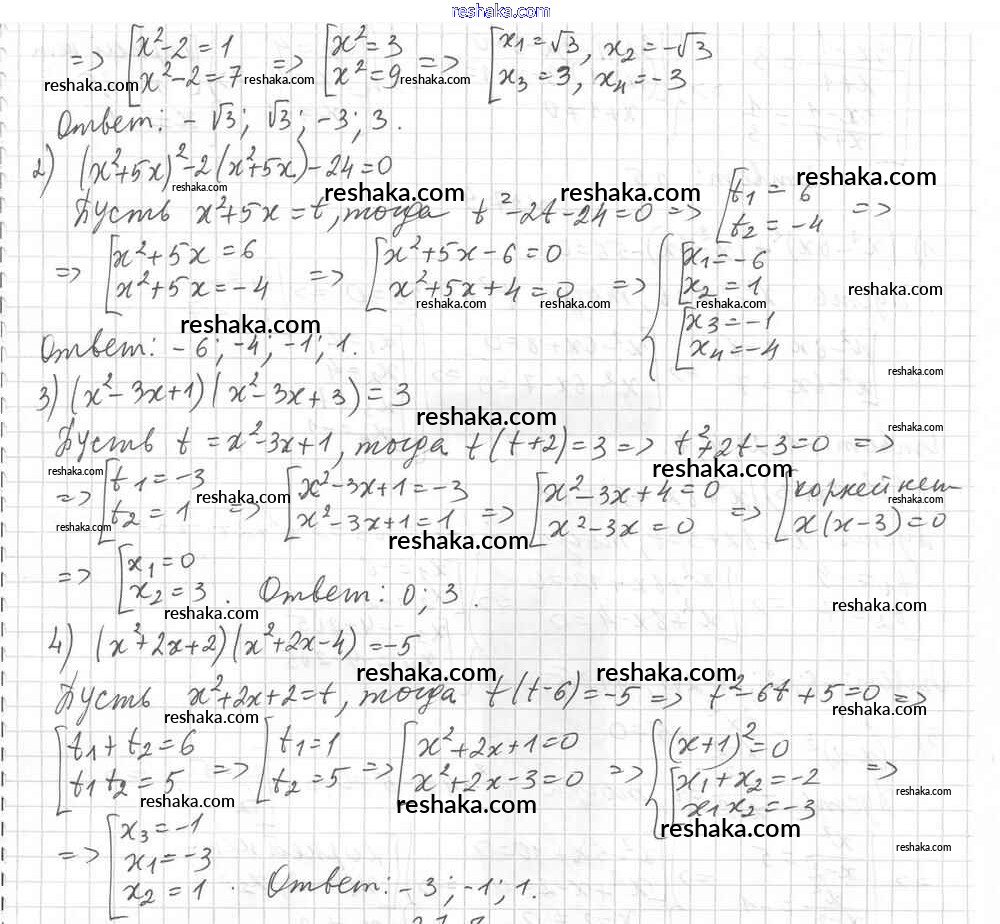 reshaka.com
=> [x²-2=1 => [x²=3 => [x₁=√3, x₂=-√3
[x²-2=7 [x²=9 [x₃=3, x₄=-3
reshaka.com reshaka.com reshaka.com
Ответ: -√3; √3; -3; 3.
2) (x²+5x)²-2(x²+5x)-24=0
reshaka.com reshaka.com reshaka.com reshaka.com
Пусть x²+5x=t, тогда t²-2t-24=0 => [t₁=6
[t₂=-4 =>
=> [x²+5x=6 => [x²+5x-6=0 => { [x₁=-6
[x²+5x=-4 [x²+5x+4=0 [x₂=1
reshaka.com reshaka.com reshaka.com reshaka.com
reshaka.com [x₃=-1
[x₄=-4
Ответ: -6; -4; -1; 1.
reshaka.com
3) (x²-3x+1)(x²-3x+3)=3
reshaka.com reshaka.com
Пусть t=x²-3x+1, тогда t(t+2)=3 => t²+2t-3=0 =>
reshaka.com reshaka.com reshaka.com reshaka.com
=> [t₁=-3 => [x²-3x+1=-3 => [x²-3x+4=0 => [корней нет
[t₂=1 [x²-3x+1=1 [x²-3x=0 [x(x-3)=0
reshaka.com reshaka.com
=> [x₁=0
[x₂=3. Ответ: 0; 3.
reshaka.com reshaka.com
4) (x²+2x+2)(x²+2x-4)=-5
reshaka.com reshaka.com
Пусть x²+2x+2=t, тогда t(t-6)=-5 => t²-6t+5=0 =>
reshaka.com reshaka.com
[t₁+t₂=6 => [t₁=1 => [x²+2x+1=0 => { (x+1)²=0
[t₁t₂=5 [t₂=5 [x²+2x-3=0 [x₁+x₂=-2 =>
[x₁x₂=-3
reshaka.com reshaka.com reshaka.com reshaka.com
=> [x₃=-1
[x₁=-3
[x₂=1. Ответ: -3; -1; 1.
reshaka.com